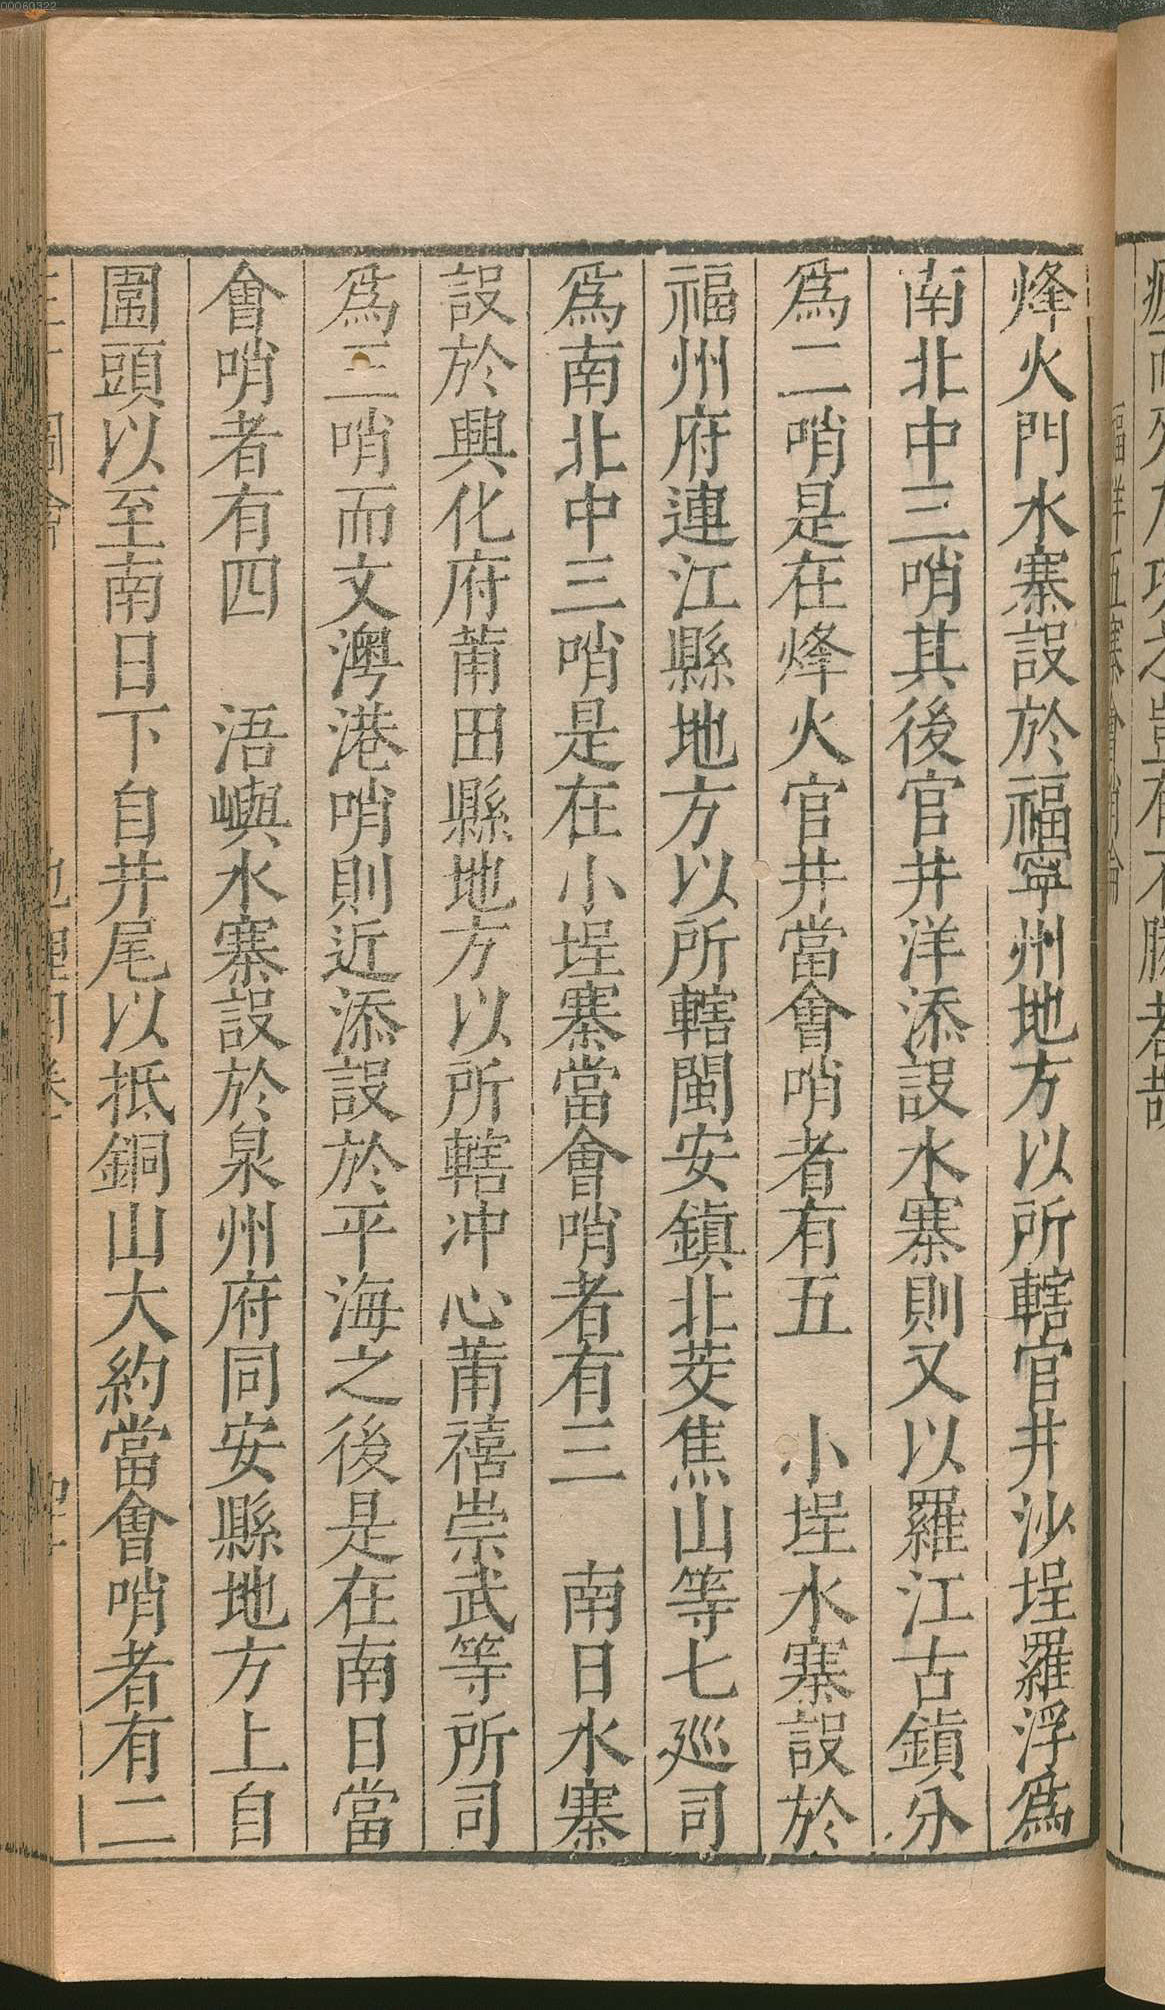 00060322
烽火門水寨設於福寧州地方以所轄官井沙埕羅浮爲
南北中三哨其後官井洋添設水寨則又以羅江古鎮分
爲二哨是在烽火官井當會哨者有五　小埕水寨設於
福州府連江縣地方以所轄閩安鎮北茭焦山等七廵司
爲南北中三哨是在小埕寨當會哨者有三　南日水寨
設於興化府莆田縣地方以所轄冲心莆禧崇武等所司
爲三哨而文澳港哨則近添設於平海之後是在南日當
會哨者有四　浯嶼水寨設於泉州府同安縣地方上自
圍頭以至南日下自井尾以抵銅山大約當會哨者有二